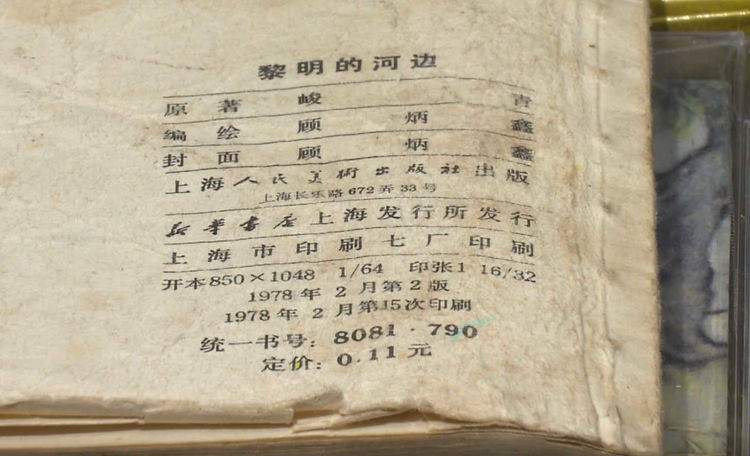 黎明的河边
原著 峻青
编绘 顾炳鑫
封面 顾炳鑫
上海人民美術出版社出版
上海长乐路672弄33号
新华书店上海发行所发行
上海市印刷七厂印刷
开本850×1048 1/64 印张1 16/32
1978年2月第2版
1978年2月第15次印刷
统一书号：8081·790
定价：0.11元